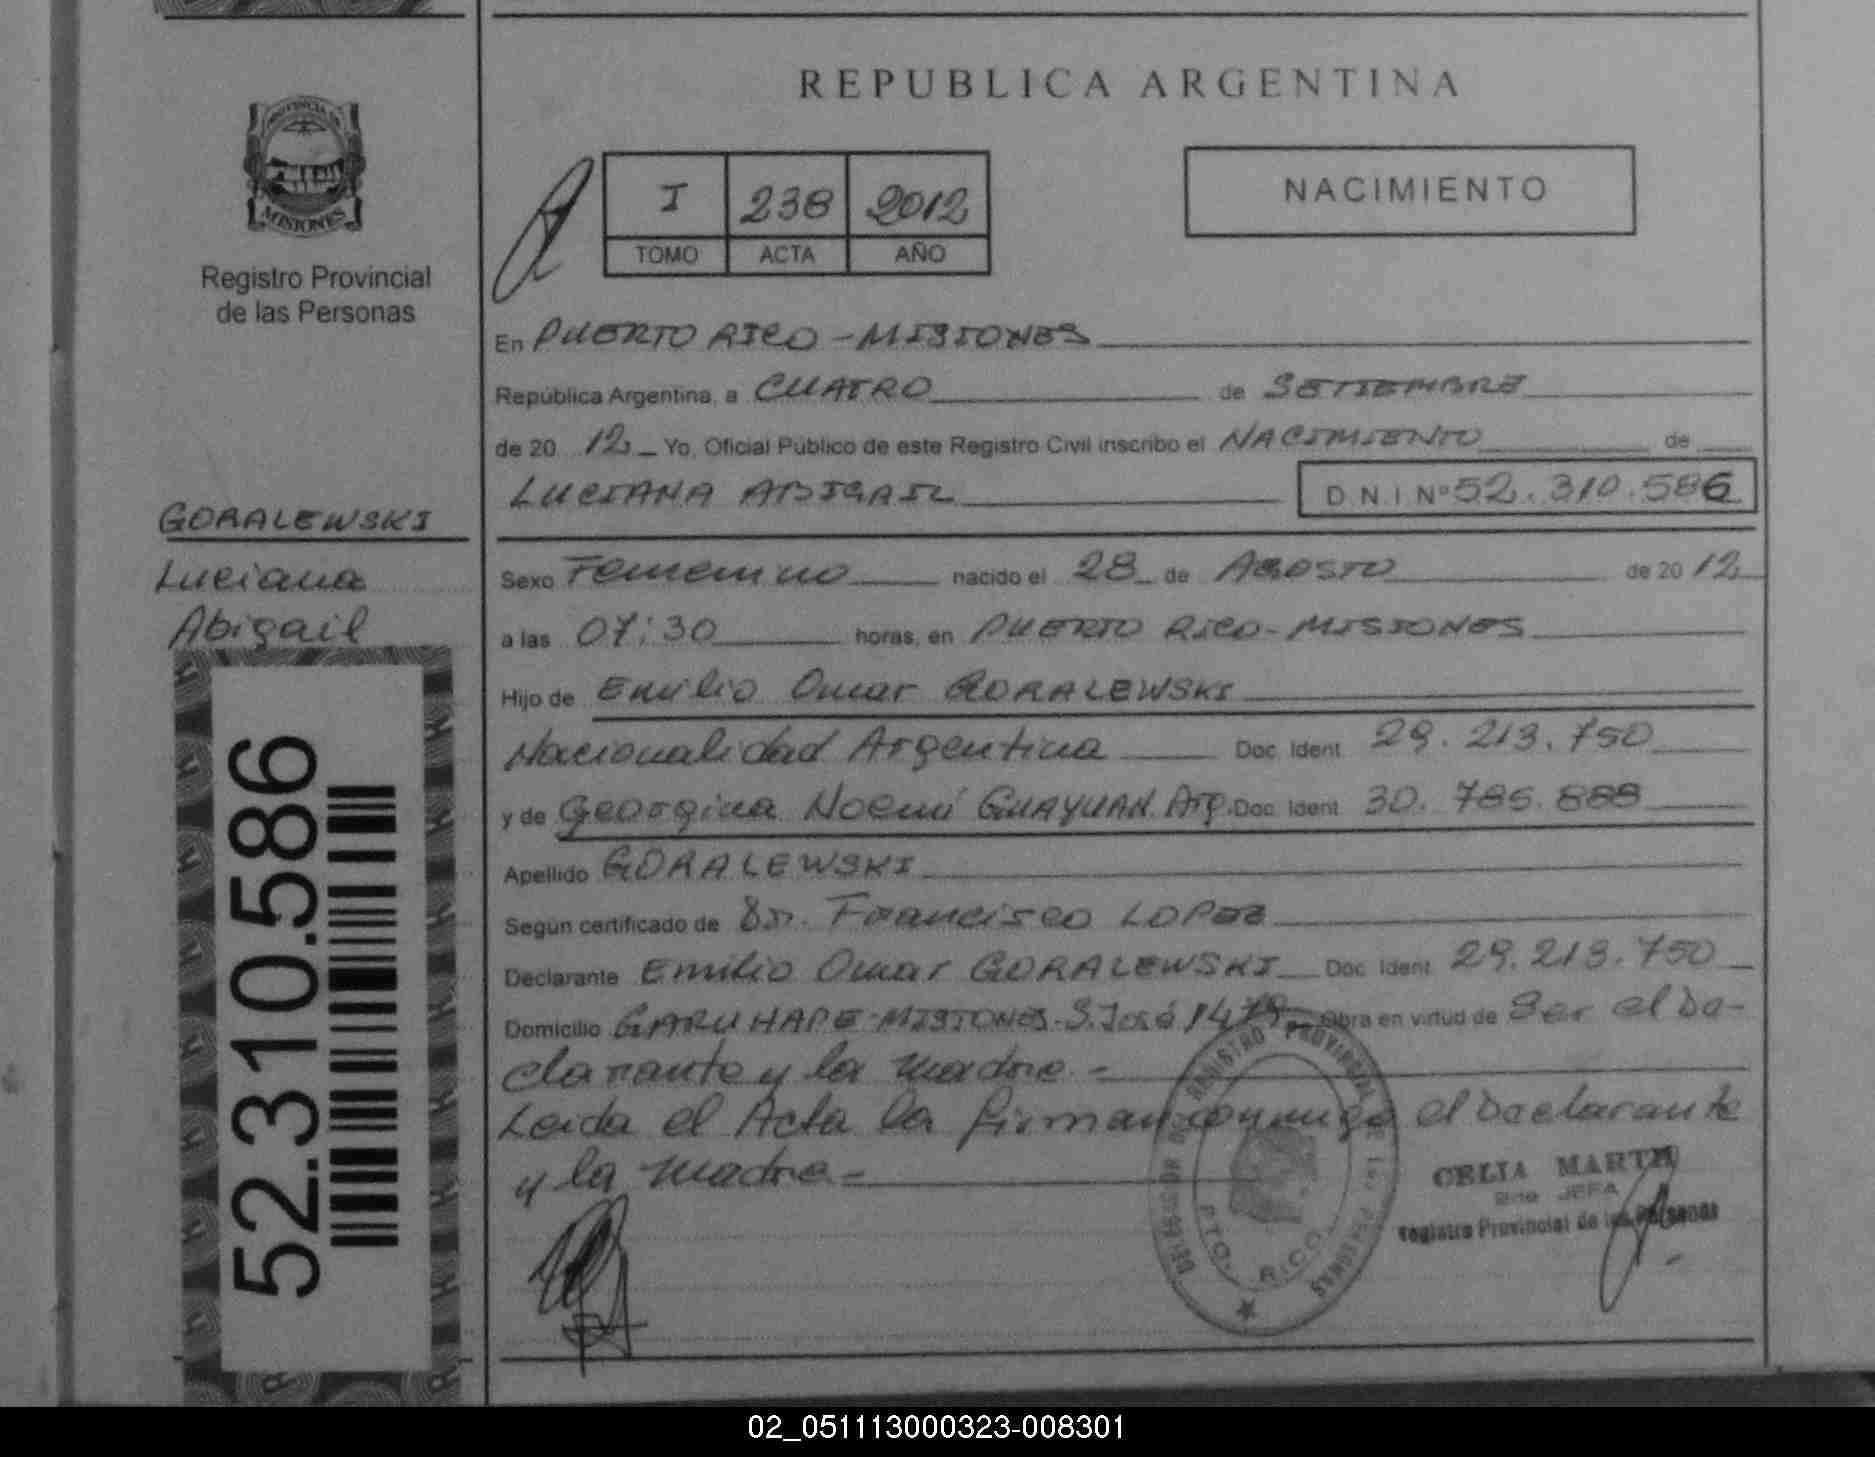 REPUBLICA ARGENTINA
PROVINCIA DE
MISIONES
Registro Provincial
de las Personas
I 238 2012
TOMO ACTA AÑO
NACIMIENTO
En PUERTO RICO - MISIONES
República Argentina, a CUATRO de SETIEMBRE
de 20 12 Yo, Oficial Público de este Registro Civil inscribo el NACIMIENTO de
LUCIANA ABIGAIL D.N.I. Nº 52.310.586
GORALEWSKI
Luciana
Abigail
52.310.586
Sexo Femenino nacido el 28 de AGOSTO de 20 12
a las 07:30 horas, en PUERTO RICO - MISIONES
Hijo de Emilio Omar GORALEWSKI
Nacionalidad Argentina Doc. Ident. 29.213.750
y de Georgina Noemí GUAYUAN. Arg. Doc. Ident. 30.785.888
Apellido GORALEWSKI
Según certificado de Dr. Francisco LOPEZ
Declarante Emilio Omar GORALEWSKI Doc. Ident. 29.213.750
Domicilio GARUHAPE-MISIONES-S.José 1479 Obra en virtud de Ser el De-
clarante y la madre.-
Leida el Acta la firman conmigo el Declarante
y la madre.-
REGISTRO PROVINCIAL DE las PERSONAS
PTO. RICO
CELIA MARTH
JEFA
Registro Provincial de las Personas
02_051113000323-008301